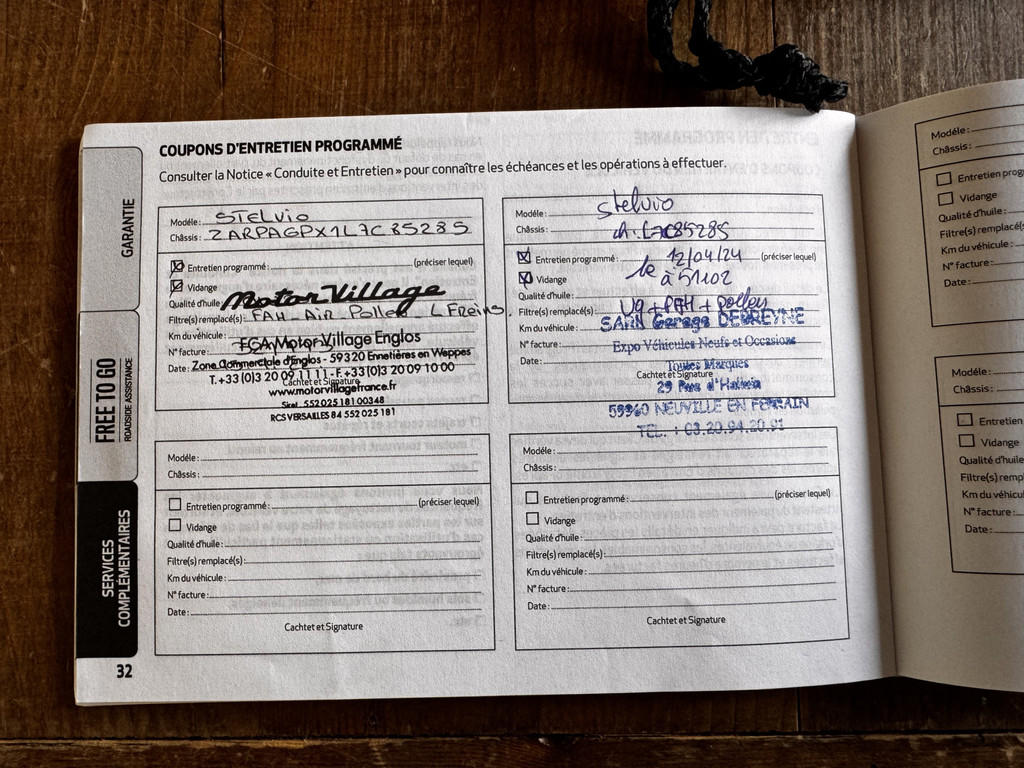 COUPONS D'ENTRETIEN PROGRAMMÉ
Consulter la Notice « Conduite et Entretien » pour connaître les échéances et les opérations à effectuer.
GARANTIE
FREE TO GO
ROADSIDE ASSISTANCE
SERVICES
COMPLÉMENTAIRES
32
Modéle: STELVIO
Châssis: ZARPAGPX1L7C85285
Entretien programmé: (préciser lequel)
Vidange
Qualité d'huile: Motor Village
Filtre(s) remplacé(s): FAH Air Pollen L Freins.
Km du véhicule:
N° facture: FGA Motor Village Englos
Date: Zone Commerciale d'Englos - 59320 Ennetières en Weppes
T. +33 (0)3 20 09 11 11 - F. +33 (0)3 20 09 10 00
Cachtet et Signature
www.motorvillagefrance.fr
Siret 552 025 181 00348
RCS VERSAILLES 84 552 025 181
Modéle: Stelvio
Châssis: ch. L7C85285
Entretien programmé: 12/04/24 (préciser lequel)
Vidange le à 51102
Qualité d'huile:
Filtre(s) remplacé(s): Vg + FAH + Pollen
Km du véhicule: SARL Garage DEBREYNE
N° facture: Expo Véhicules Neufs et Occasions
Date: Toutes Marques
Cachtet et Signature
29 Rue d'Halluin
59960 NEUVILLE EN FERRAIN
TEL. : 03.20.94.20.91
Modéle:
Châssis:
Entretien programmé: (préciser lequel)
Vidange
Qualité d'huile:
Filtre(s) remplacé(s):
Km du véhicule:
N° facture:
Date:
Cachtet et Signature
Modéle:
Châssis:
Entretien programmé: (préciser lequel)
Vidange
Qualité d'huile:
Filtre(s) remplacé(s):
Km du véhicule:
N° facture:
Date:
Cachtet et Signature
Modéle:
Châssis:
Entretien prog
Vidange
Qualité d'huile:
Filtre(s) remplacé(s
Km du véhicule:
N° facture:
Date:
Modéle:
Châssis:
Entretien
Vidange
Qualité d'huile
Filtre(s) remp
Km du véhicul
N° facture:
Date: